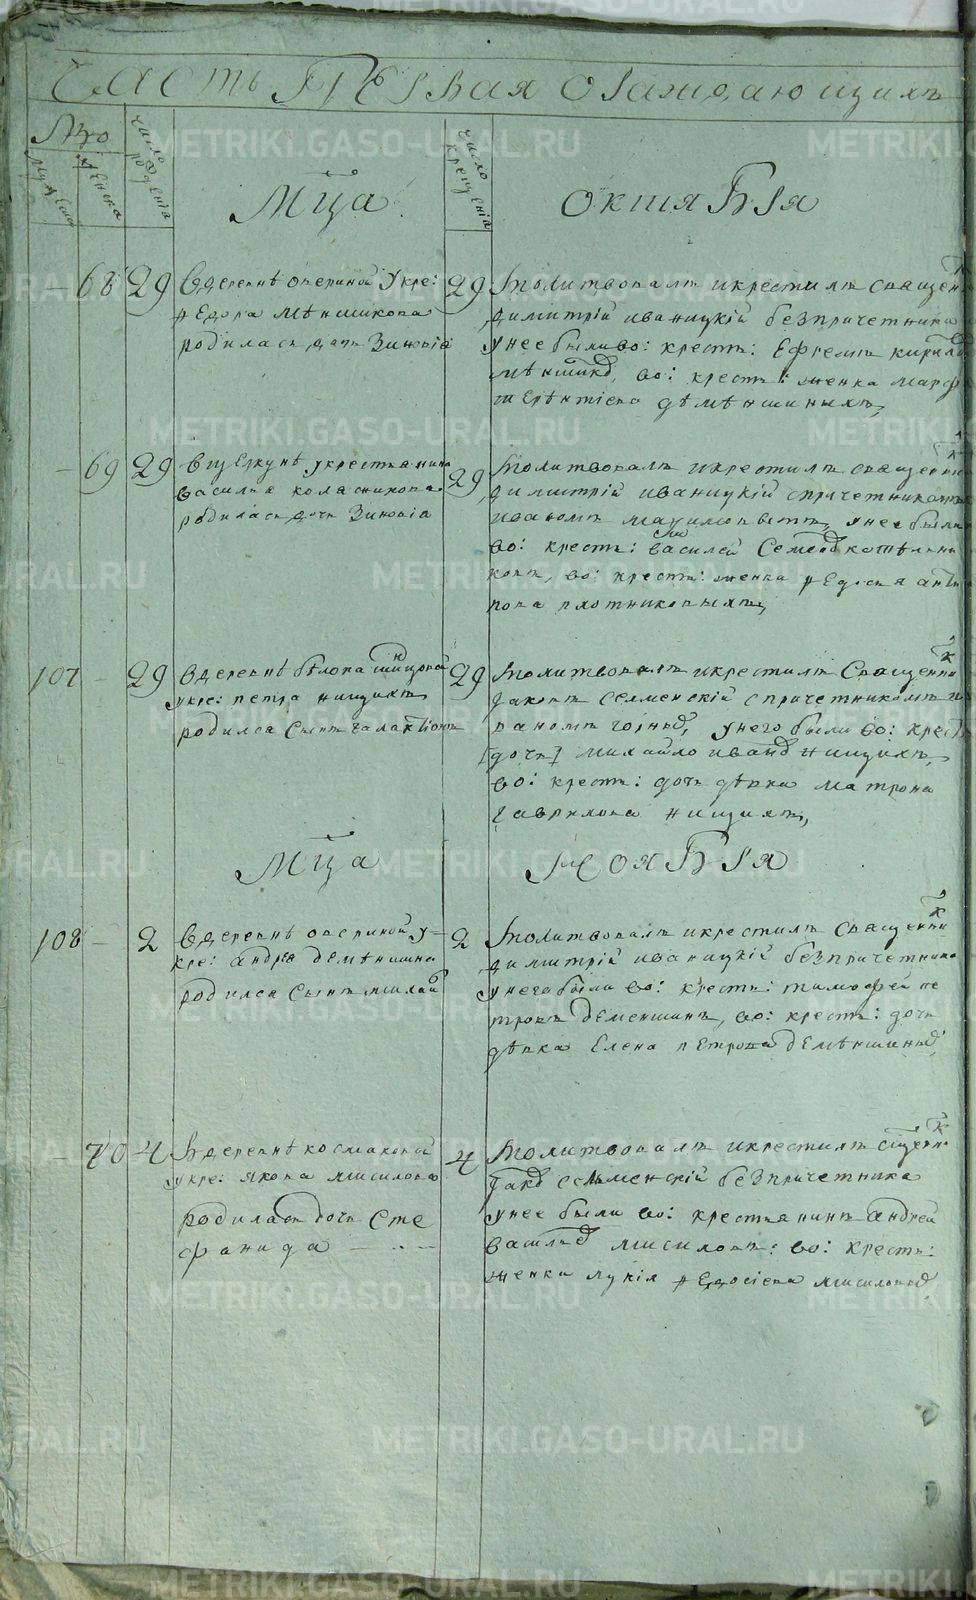 Часть Первая ораждающихъ
№ро
мужеска
женска
число рожденiя
число крещенiя
Мца октяБРя
68 29 Вдеревнѣ опериной укре:
Федора мѣншикова
родилась дочь Зиновiя
29 молитвовалъ икрестилъ священ к
димитрiй иваницкiй безпричетника
унее быливо: крестъ: Ефремъ кирило
мѣншико, во: крестъ: женка марф
терентiева дѣмѣншиныхъ,
69 29 вщелкунѣ укрестьянина
василья колясникова
родилась дочь Зиновiя
29 молитвовалъ икрестилъ священни к
димитрiй иваницкiй спричетникомъ
иваномъ максимовымъ, унее были
во: крестъ: василей Семено котѣльни
ковъ, во: крестъ: женка федосья анти
пова плотниковыхъ,
107 29 вдеревнѣ бѣлоносовой
укре: петра нищихъ
родился сынъ галактiонъ
29 молитвовалъ икрестилъ Священни к
Iаковъ селменскiй спричетникомъ и
ваномъ горных, унего были во: крест
[дочь] михайло ивано нищихъ,
во: крестъ: дочь дѣвка матрона
гаврилова нищихъ,
Мца НОяБРя
108 2 Вдеревнѣ опериной у
кре: андрѣа демѣншина
родился Сынъ михаи
2 молитвовалъ икрестилъ священни к
димитрiй иваницкiй безпричетника
унего были во: крестъ: тимофей пе
тровъ деменшинъ, во: крестъ: дочь
дѣвка Елена петрова демѣншины
70 4 Вдеревнѣ космаковой
укре: якова мисилова
родилась дочь Сте
фанида
4 молитвовалъ икрестилъ сщенни к
Iако селменскiй безпричетника
унее были во: крестьянинъ андрей
василье мисиловъ: во: крестъ:
женка лукiя федосiева мисиловы
METRIKI.GASO-URAL.RU